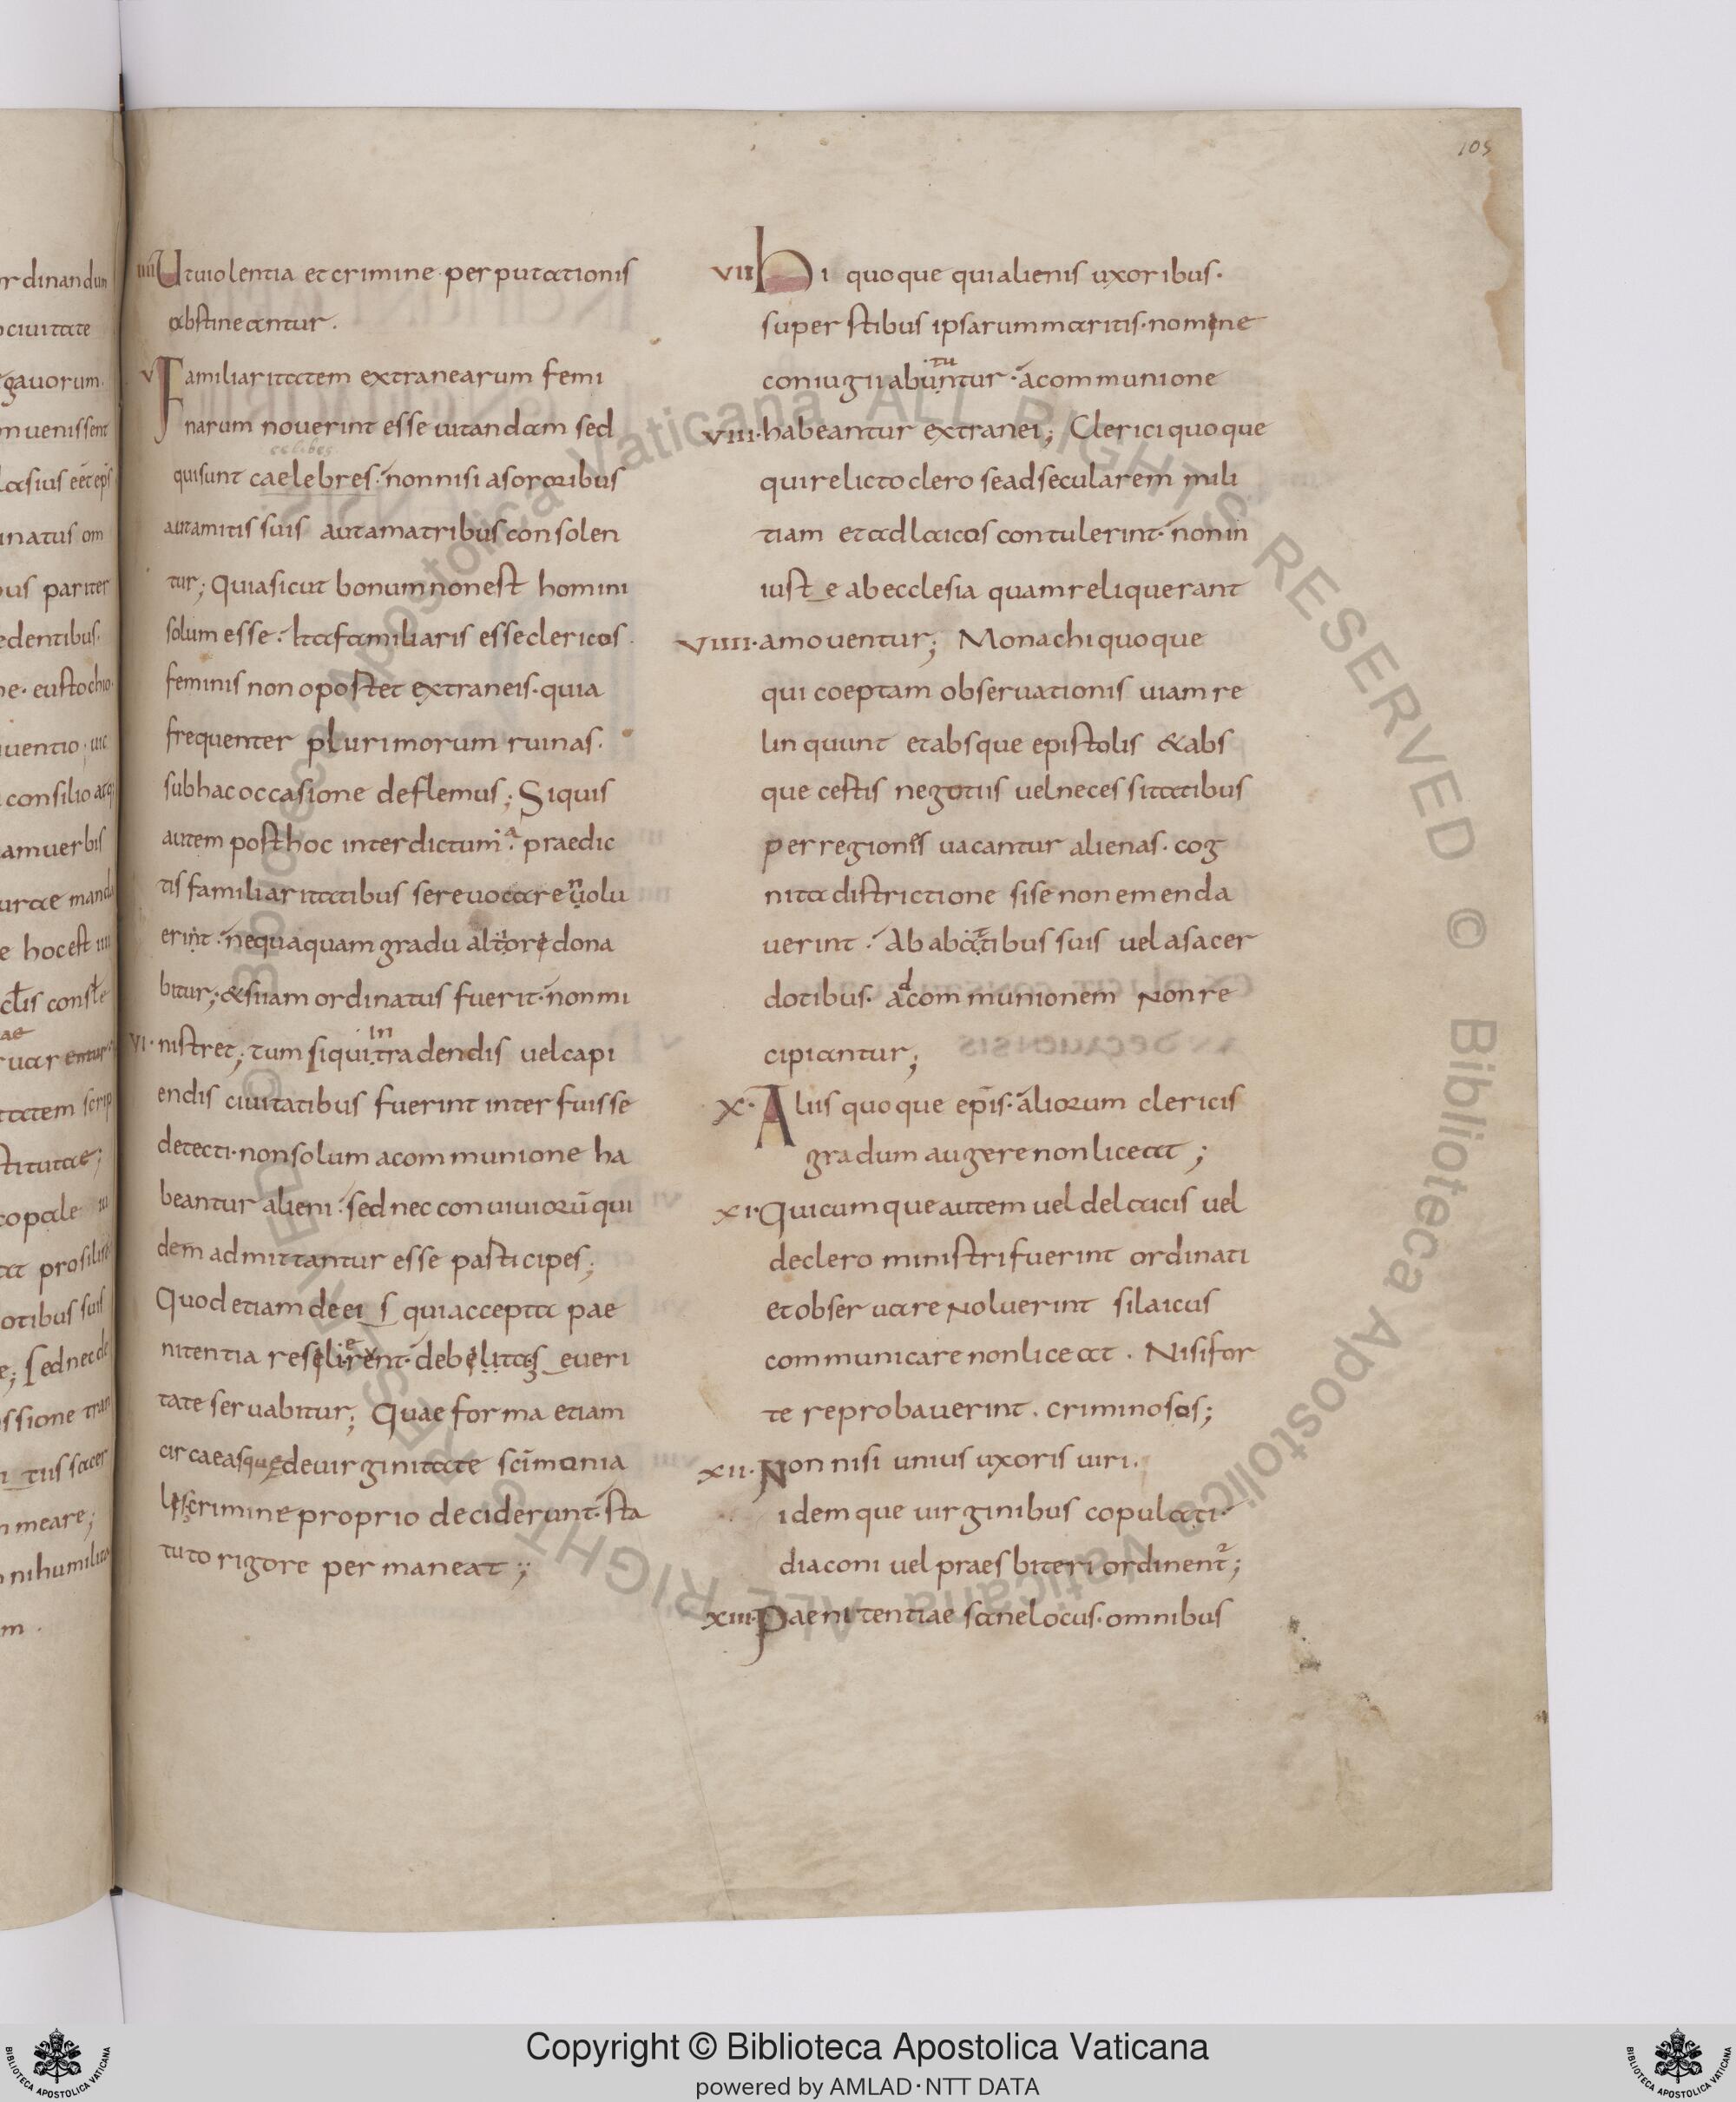 105
rdinandum
ciuitate
gauorum.
nuenissent
pus pariter
edentibus.
consilio atq;
amuerbis
e hocest iiii
meare;
nihumilita
m .
iiii Utuiolentia et crimine perputationis
abstineantur.
v Familiaritatem extranearum femi
narum nouerint esse uitandam sed
celibes
quisunt caelebres. nonnisi asororibus
autamitis suis autamatribus consolen
tur; Quiasicut bonumnonest homini
solum esse. Itafamiliaris esseclericos.
feminis non opostet extraneis. quia
frequenter plurimorum ruinas.
subhacoccasione deflemus; Siquis
a
autem posthoc interdictum. praedic
n
tis familiaritatibus sereuocare uolu
erint. nequaquam gradu altiore dona
bitur; &siiam ordinatus fuerit. nonmi
in
vi. nistret; tum siqui tradendis uelcapi
endis ciuitatibus fuerint interfuisse
detecti. nonsolum acommunione ha
beantur alieni. sed nec conuiuiorū qui
dem admittantur esse pasticipes;
Quod etiam de ei s quiaccepta pae
e
nitentia reselirent. debelitas eueri
tate seruabitur; Quae forma etiam
circaeasquedeuirginitate scīmonia
lescrimine proprio deciderunt. sta
tuto rigore permaneat;
vii Hi quoque quialienis uxoribus.
superstibus ipsarummaritis. nomine
tu
coniugii abuntur. acommunione
viii. habeantur extranei; Clericiquoque
quirelictoclero seadsecularem mili
tiam etadlaicos contulerint. nonin
iust e abecclesia quamreliquerant
viiii. amouentur; Monachiquoque
qui coeptam obseruationis uiamre
linquunt etabsque epistolis &abs
que cestis negotiis uelnecessitatibus
perregiones uacantur alienas. cog
nitadistrictione sise nonemenda
uerint. Ab abbatibus suis uel asacer
d
dotibus. acommunionem Nonre
cipiantur;
x. Aliis quoque epīs. aliorum clericis
gradum augerenonliceat;
xi. Quicumqueautem uel delaicis uel
declero ministrifuerint ordinati
etobseruare Noluerint silaicus
communicare nonliceat. Nisifor
te reprobauerint. criminosos;
xii. Non nisi unius uxoris uiri.
idemque uirginibus copulati.
diaconi uel praesbiteri ordinent̄;
xiii. Paenitentiae sanelocus. omnibus
© Biblioteca Apostolica Vaticana ALL RIGHTS RESERVED © Biblioteca Apostolica Vaticana ALL RIGHTS RESERVED
Copyright © Biblioteca Apostolica Vaticana
powered by AMLAD・NTT DATA
BIBLIOTECA APOSTOLICA VATICANA
BIBLIOTECA APOSTOLICA VATICANA